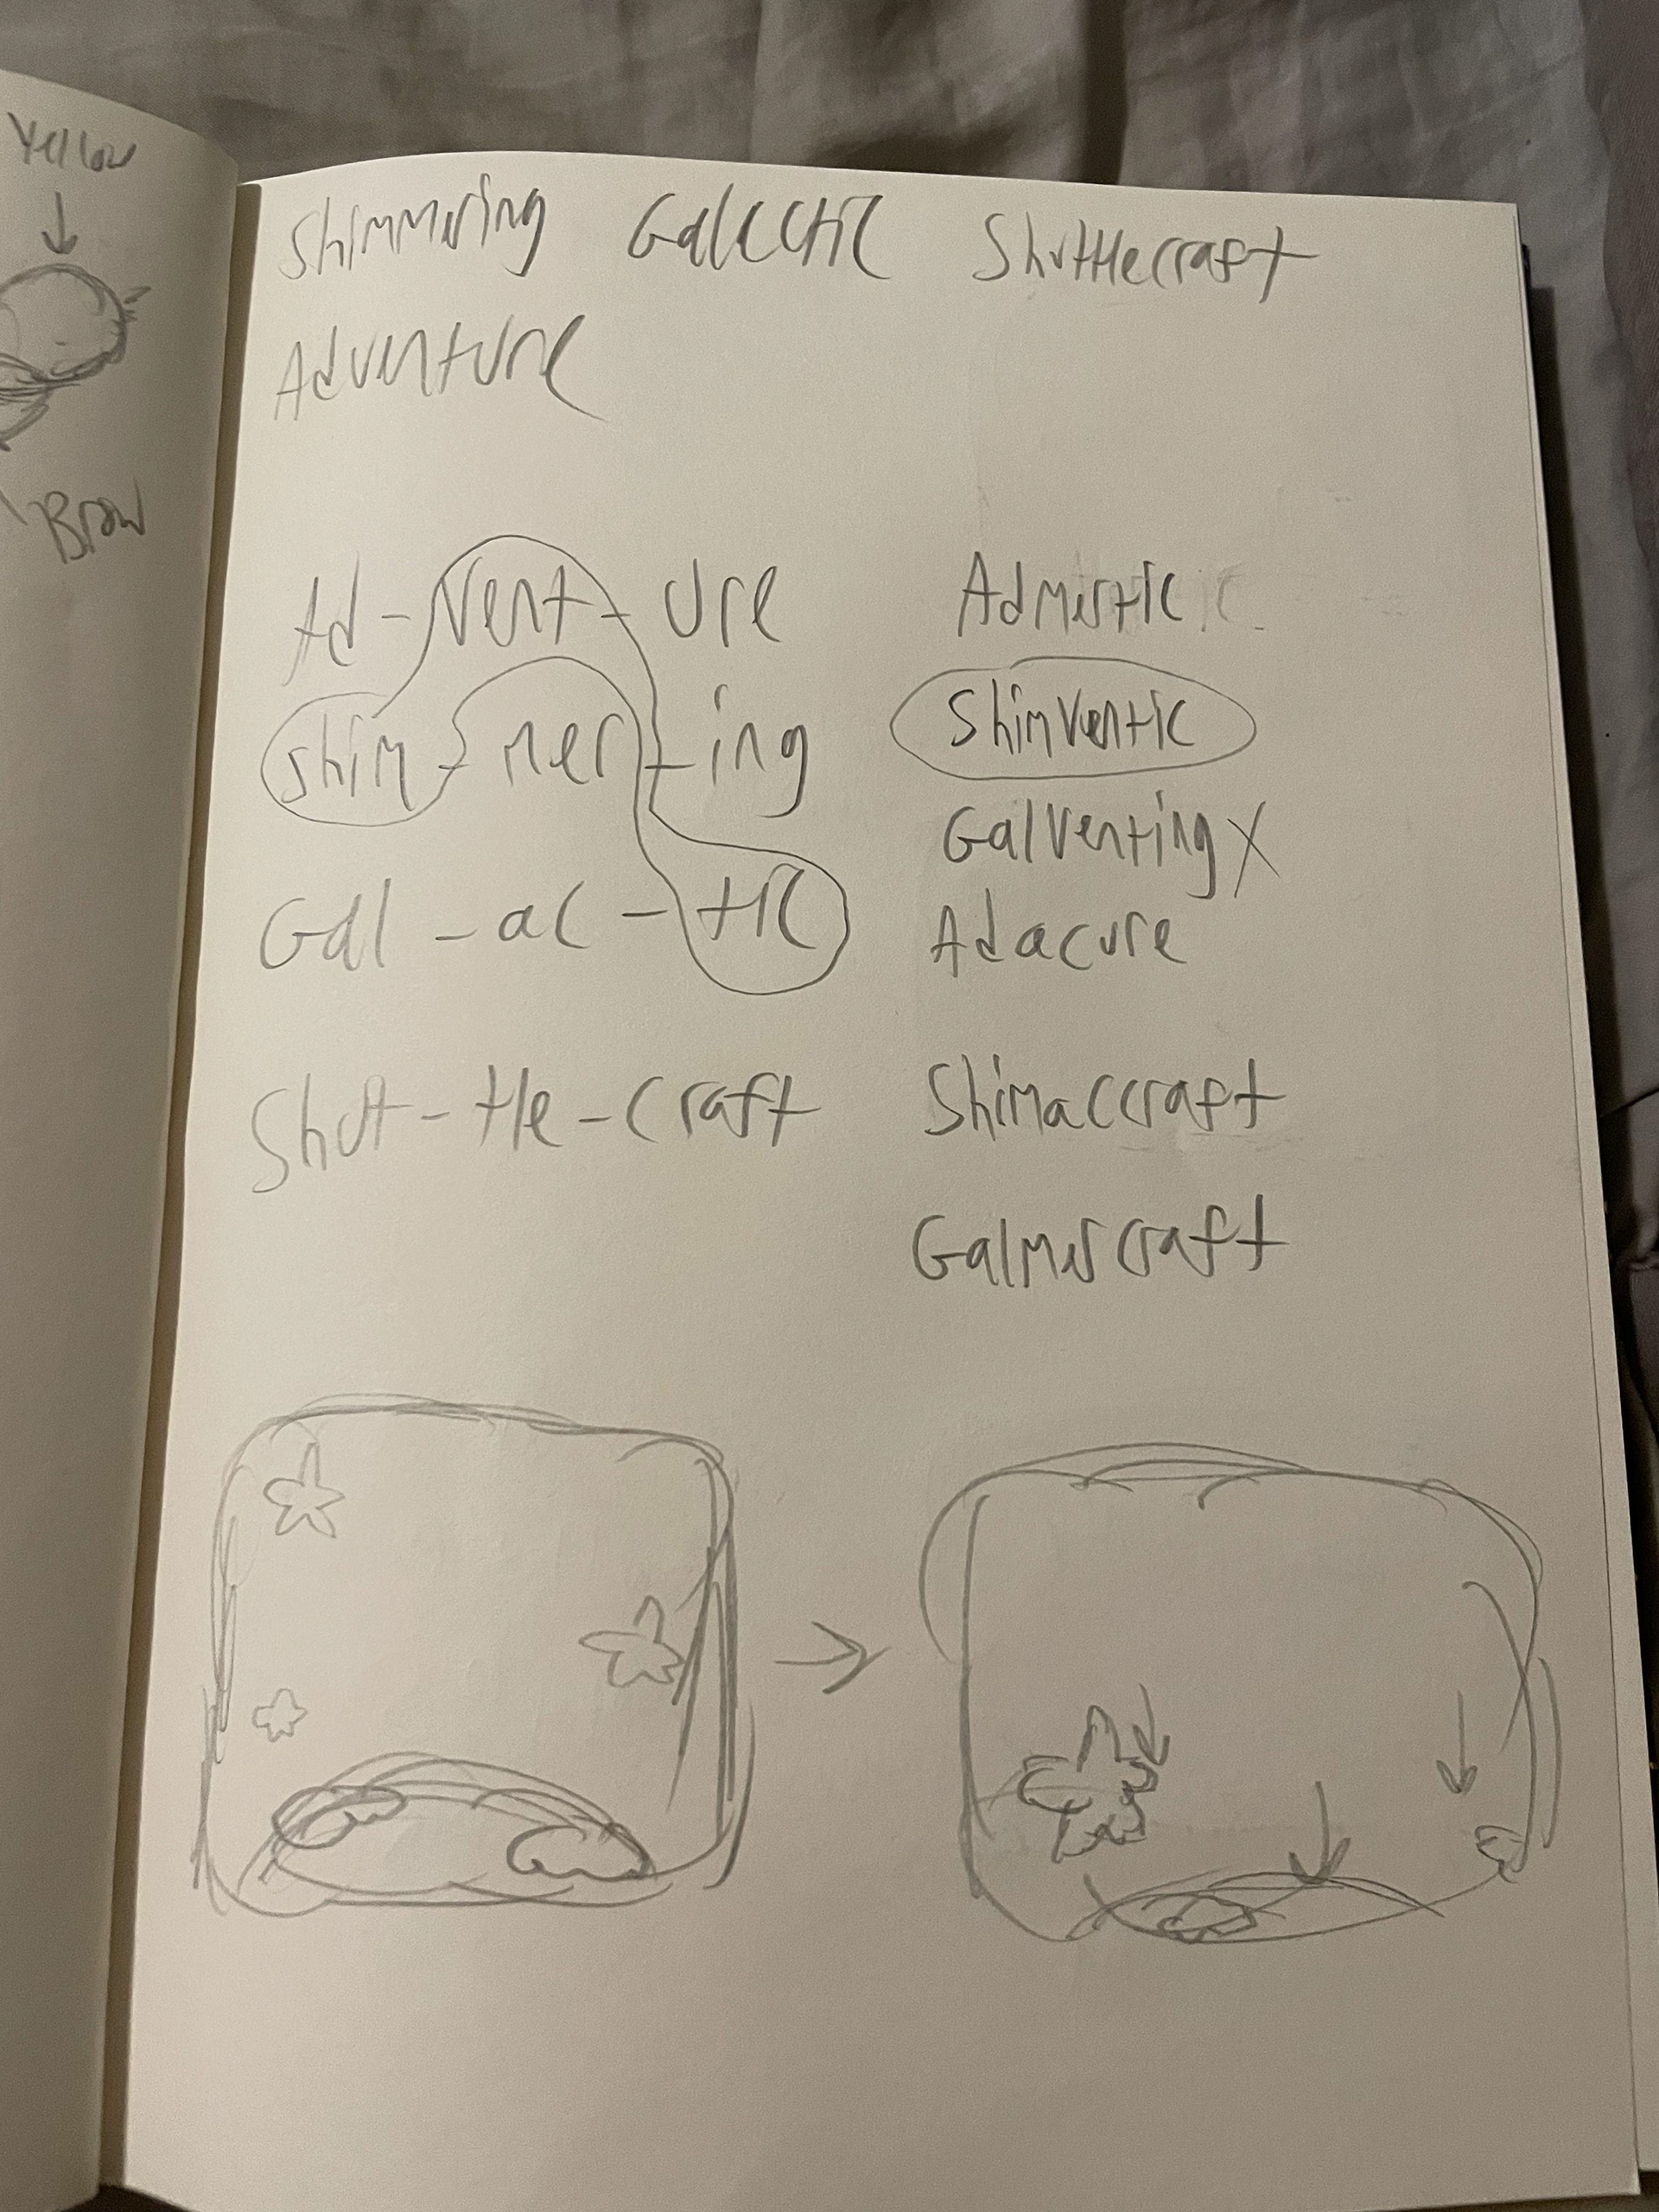 Yellow
Brow
Shimmering Galectic Shuttlecraft
Adventure
Ad - Vent - Ure
Shim - mer - ing
Gal - ac - tic
Shut - tle - craft
Admertic
Shimventic
Galventing X
Adacure
Shimaccraft
Galmercraft